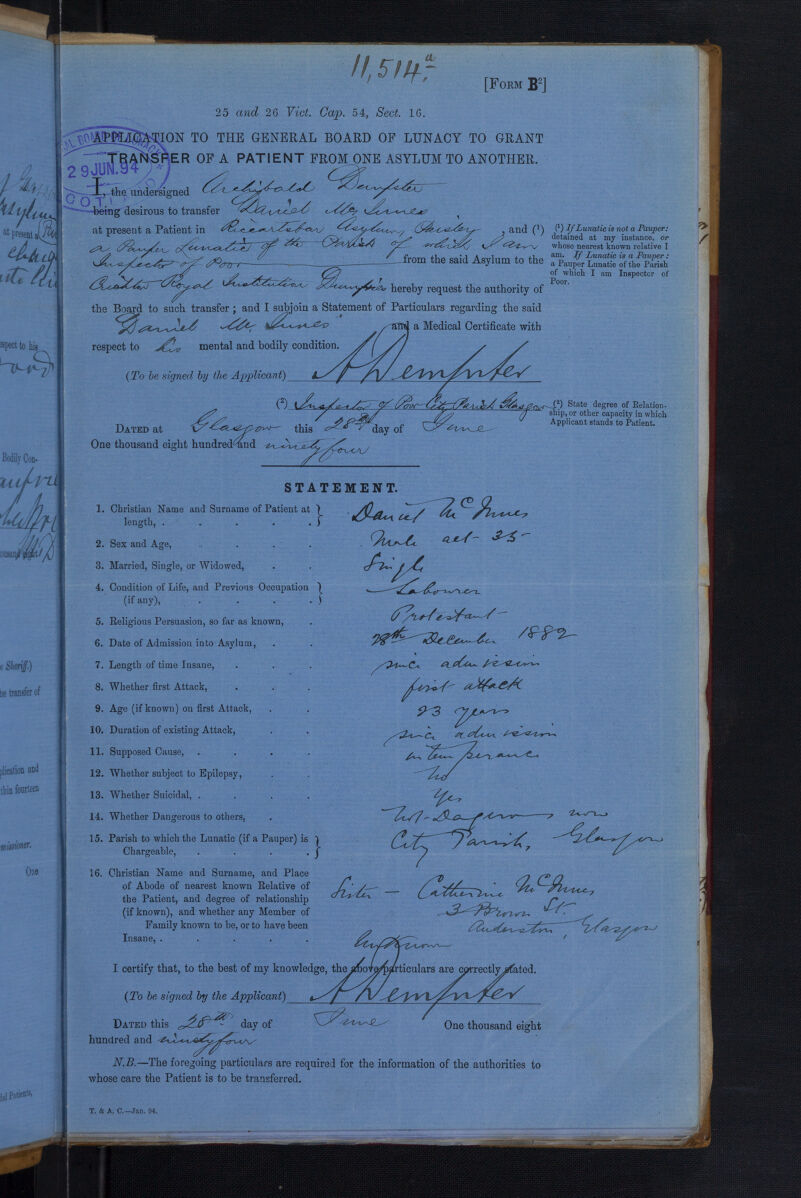 11,514a
[FORM B2]
25 and 26 Vict. Cap. 54, Sect. 16.
APPLICATION TO THE GENERAL BOARD OF LUNACY TO GRANT
TRANSFER OF A PATIENT FROM ONE ASYLUM TO ANOTHER.
29 JUN. 94
I, the undersigned Archibald Dempster
being desirous to transfer Daniel Mc Innes
at present a Patient in Riccartsbar Asylum, Paisley, and (1)
a Pauper Lunatic of the Parish of which I am
Inspector of Poor from the said Asylum to the
Crichton Royal Institution Dumfries hereby request the authority of
the Board to such transfer; and I subjoin a Statement of Particulars regarding the said
Daniel Mc Innes and a Medical Certificate with
respect to his mental and bodily condition.
(1) If Lunatic is not a Pauper:
detained at my instance, or
whose nearest known relative I
am. If Lunatic is a Pauper:
a Pauper Lunatic of the Parish
of which I am Inspector of
Poor.
(To be signed by the Applicant) A Dempster
(2) Inspector of Poor City Parish Glasgow
(2) State degree of Relation-
ship, or other capacity in which
Applicant stands to Patient.
DATED at Glasgow this 28th day of June
One thousand eight hundred and ninety four
STATEMENT.
1. Christian Name and Surname of Patient at
length, . . . . . Daniel McInnes
2. Sex and Age, . . . . Male aet 35
3. Married, Single, or Widowed, . . Single
4. Condition of Life, and Previous Occupation
(if any), . . . . Labourer
5. Religious Persuasion, so far as known, . Protestant
6. Date of Admission into Asylum, . . 28th December 1882
7. Length of time Insane, . . . since admission
8. Whether first Attack, . . . first attack
9. Age (if known) on first Attack, . . 23 years
10. Duration of existing Attack, . . since admission
11. Supposed Cause, . . . . intemperance
12. Whether subject to Epilepsy, . . No
13. Whether Suicidal, . . . . Yes
14. Whether Dangerous to others, . Not-Dagerous now
15. Parish to which the Lunatic (if a Pauper) is
Chargeable, . . . . . City Parish, Glasgow
16. Christian Name and Surname, and Place
of Abode of nearest known Relative of
the Patient, and degree of relationship
(if known), and whether any Member of
Family known to be, or to have been
Insane, . . . . .
Sister - Catherine McInnes
3 Brown St.
Anderston, Glasgow
Unknown
I certify that, to the best of my knowledge, the above particulars are correctly stated.
(To be signed by the Applicant) A Dempster
DATED this 28th day of June One thousand eight
hundred and ninety four
N.B.—The foregoing particulars are required for the information of the authorities to
whose care the Patient is to be transferred.
T. & A. C.—Jan. 94.